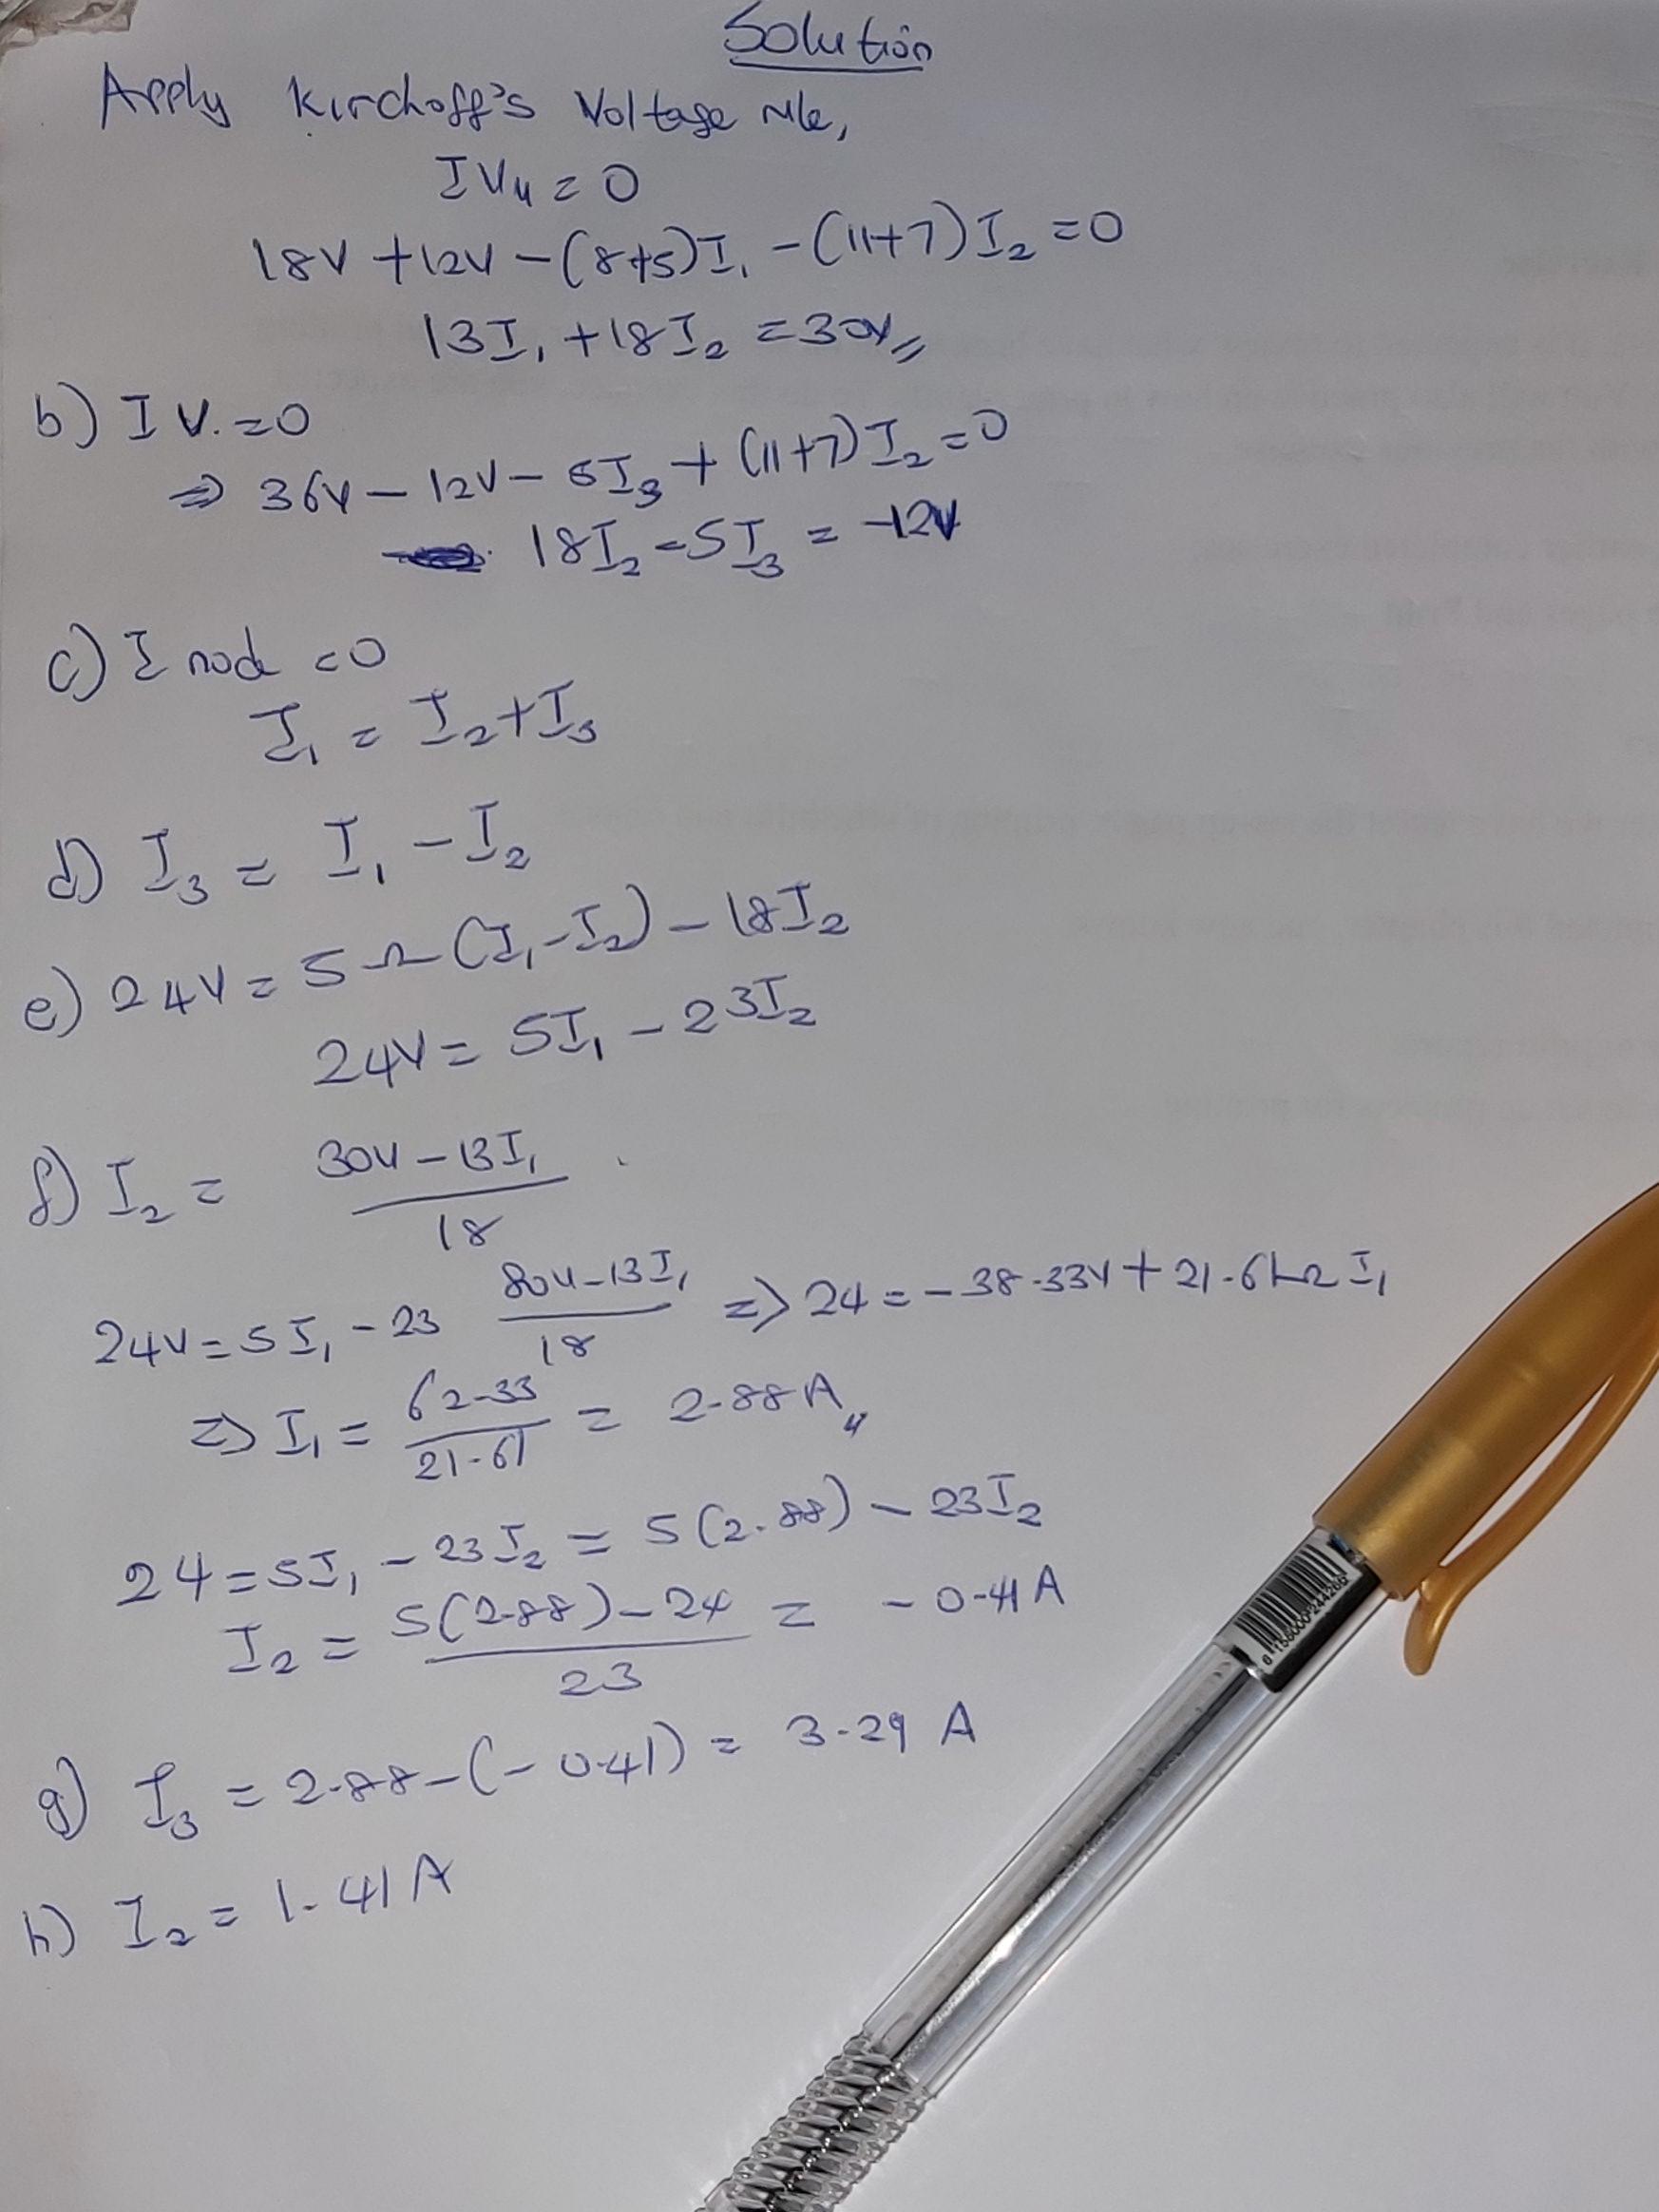 Solution
Apply Kirchoff's Voltage rule,
IV₄ = 0
18V + 12V - (8+5)I₁ - (11+7)I₂ = 0
13I₁ + 18I₂ = 30V
b) I V. = 0
⇒ 36V - 12V - 5I₃ + (11+7)I₂ = 0
18I₂ - 5I₃ = -12V
c) Σ node = 0
I₁ = I₂ + I₃
d) I₃ = I₁ - I₂
e) 24V = 5Ω (I₁ - I₂) - 18I₂
24V = 5I₁ - 23I₂
f) I₂ = 30V - 13I₁ / 18
24V = 5I₁ - 23 80V - 13I₁ / 18 ⇒ 24 = -38.33V + 21.61Ω I₁
⇒ I₁ = 62.33 / 21.61 = 2.88A
24 = 5I₁ - 23I₂ = 5(2.88) - 23I₂
I₂ = 5(2.88) - 24 / 23 = -0.41A
g) I₃ = 2.88 - (-0.41) = 3.29 A
h) I₂ = 1.41A